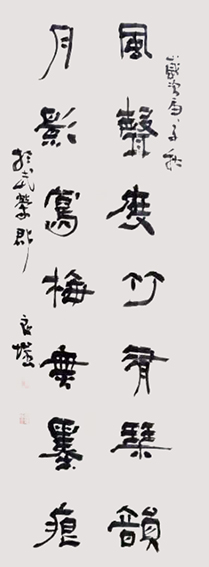 歲次丙子秋
風聲度竹有琴韻
月影寫梅無墨痕
於武榮郡